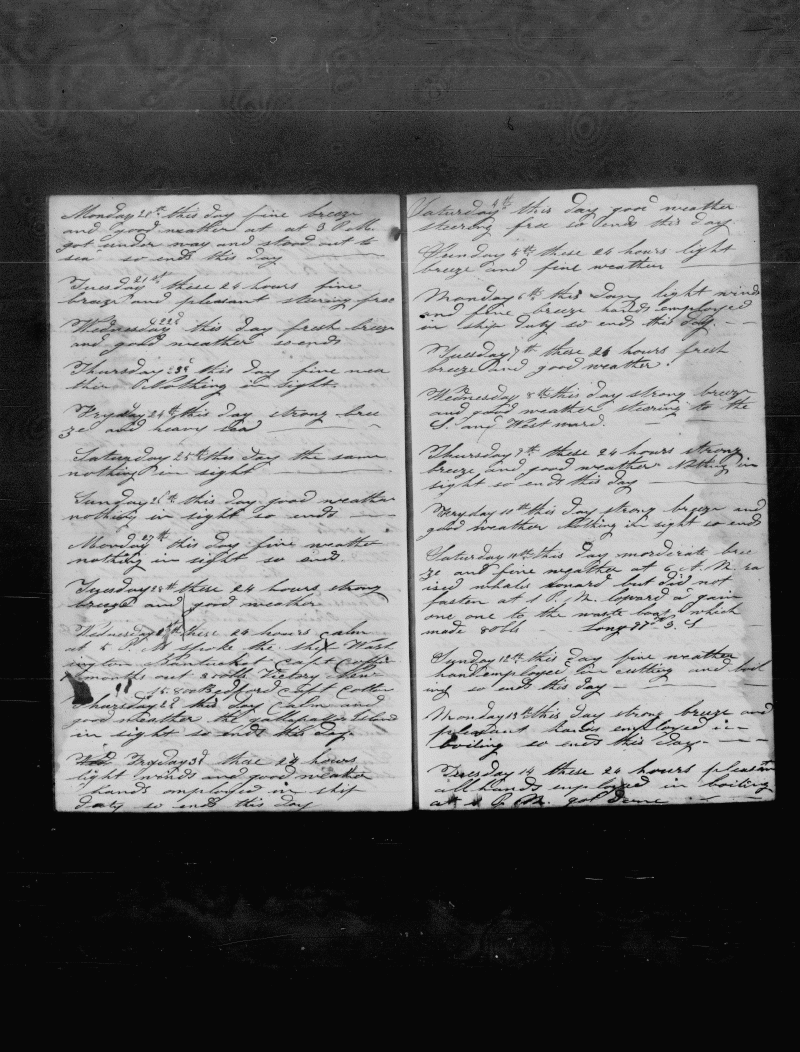 Monday 20th this day fine breeze
and good weather at at 3 P.M.
got under way and stood out to
sea so ends this day
Tuesday 21st these 24 hours fine
breeze and pleasant steering free
Wednesday 22d this day fresh breeze
and good weather so ends
Thursday 23d this day fine wea
ther Nothing in sight.
Fryday 24th this day strong bree
ze and heavy sea
Saturday 25th this day the same
nothing in sight
Sunday 26th this day good weather
nothing in sight so ends
Monday 27th this day fine weather
nothing in sight so ends.
Tuesday 28th these 24 hours strong
breeze and good weather
Wednesday these 24 hours calm
at 5 P.M. spoke the ship Wash
ington Nantucket Capt
months out Victory New
Bedford Capt
Thursday 2d this day Calm and
good weather the gallapagos Island
in sight so ends this day.
Fryday 3d these 24 hours
light winds and good weather
hands employed in ship
duty so ends this day
Saturday 4th this day good weather
steering free so ends this day
Sunday these 24 hours light
breeze and fine weather
Monday 6th this Day light wind
and fine breeze hands employed
in ship duty so ends this day.
Tuesday 7th these 24 hours fresh
breeze and good weather
Wednesday 8th this day strong breeze
and good weather stearing to the
S. and West ward.
Thursday 9th these 24 hours strong
breeze and good weather Nothing in
sight so ends this day
Fryday 10th this day strong breeze and
good weather Nothing in sight so ends
Saturday 11th this day morderate bree
ze and fine weather at 6 A.M. ra
ised whales but did not
fasten at 1 P.M. lowerd a gain
one one to the waste boat which
made 80 bbls Long
Sunday 12th this day fine weather
hand employed in cutting and boil
ing so ends this day
Monday 13th this day strong breeze and
pleasant hands employed in
boiling so ends this day.
Tuesday 14 these 24 hours pleasten
all hands employed in boiling
at P.M. got done